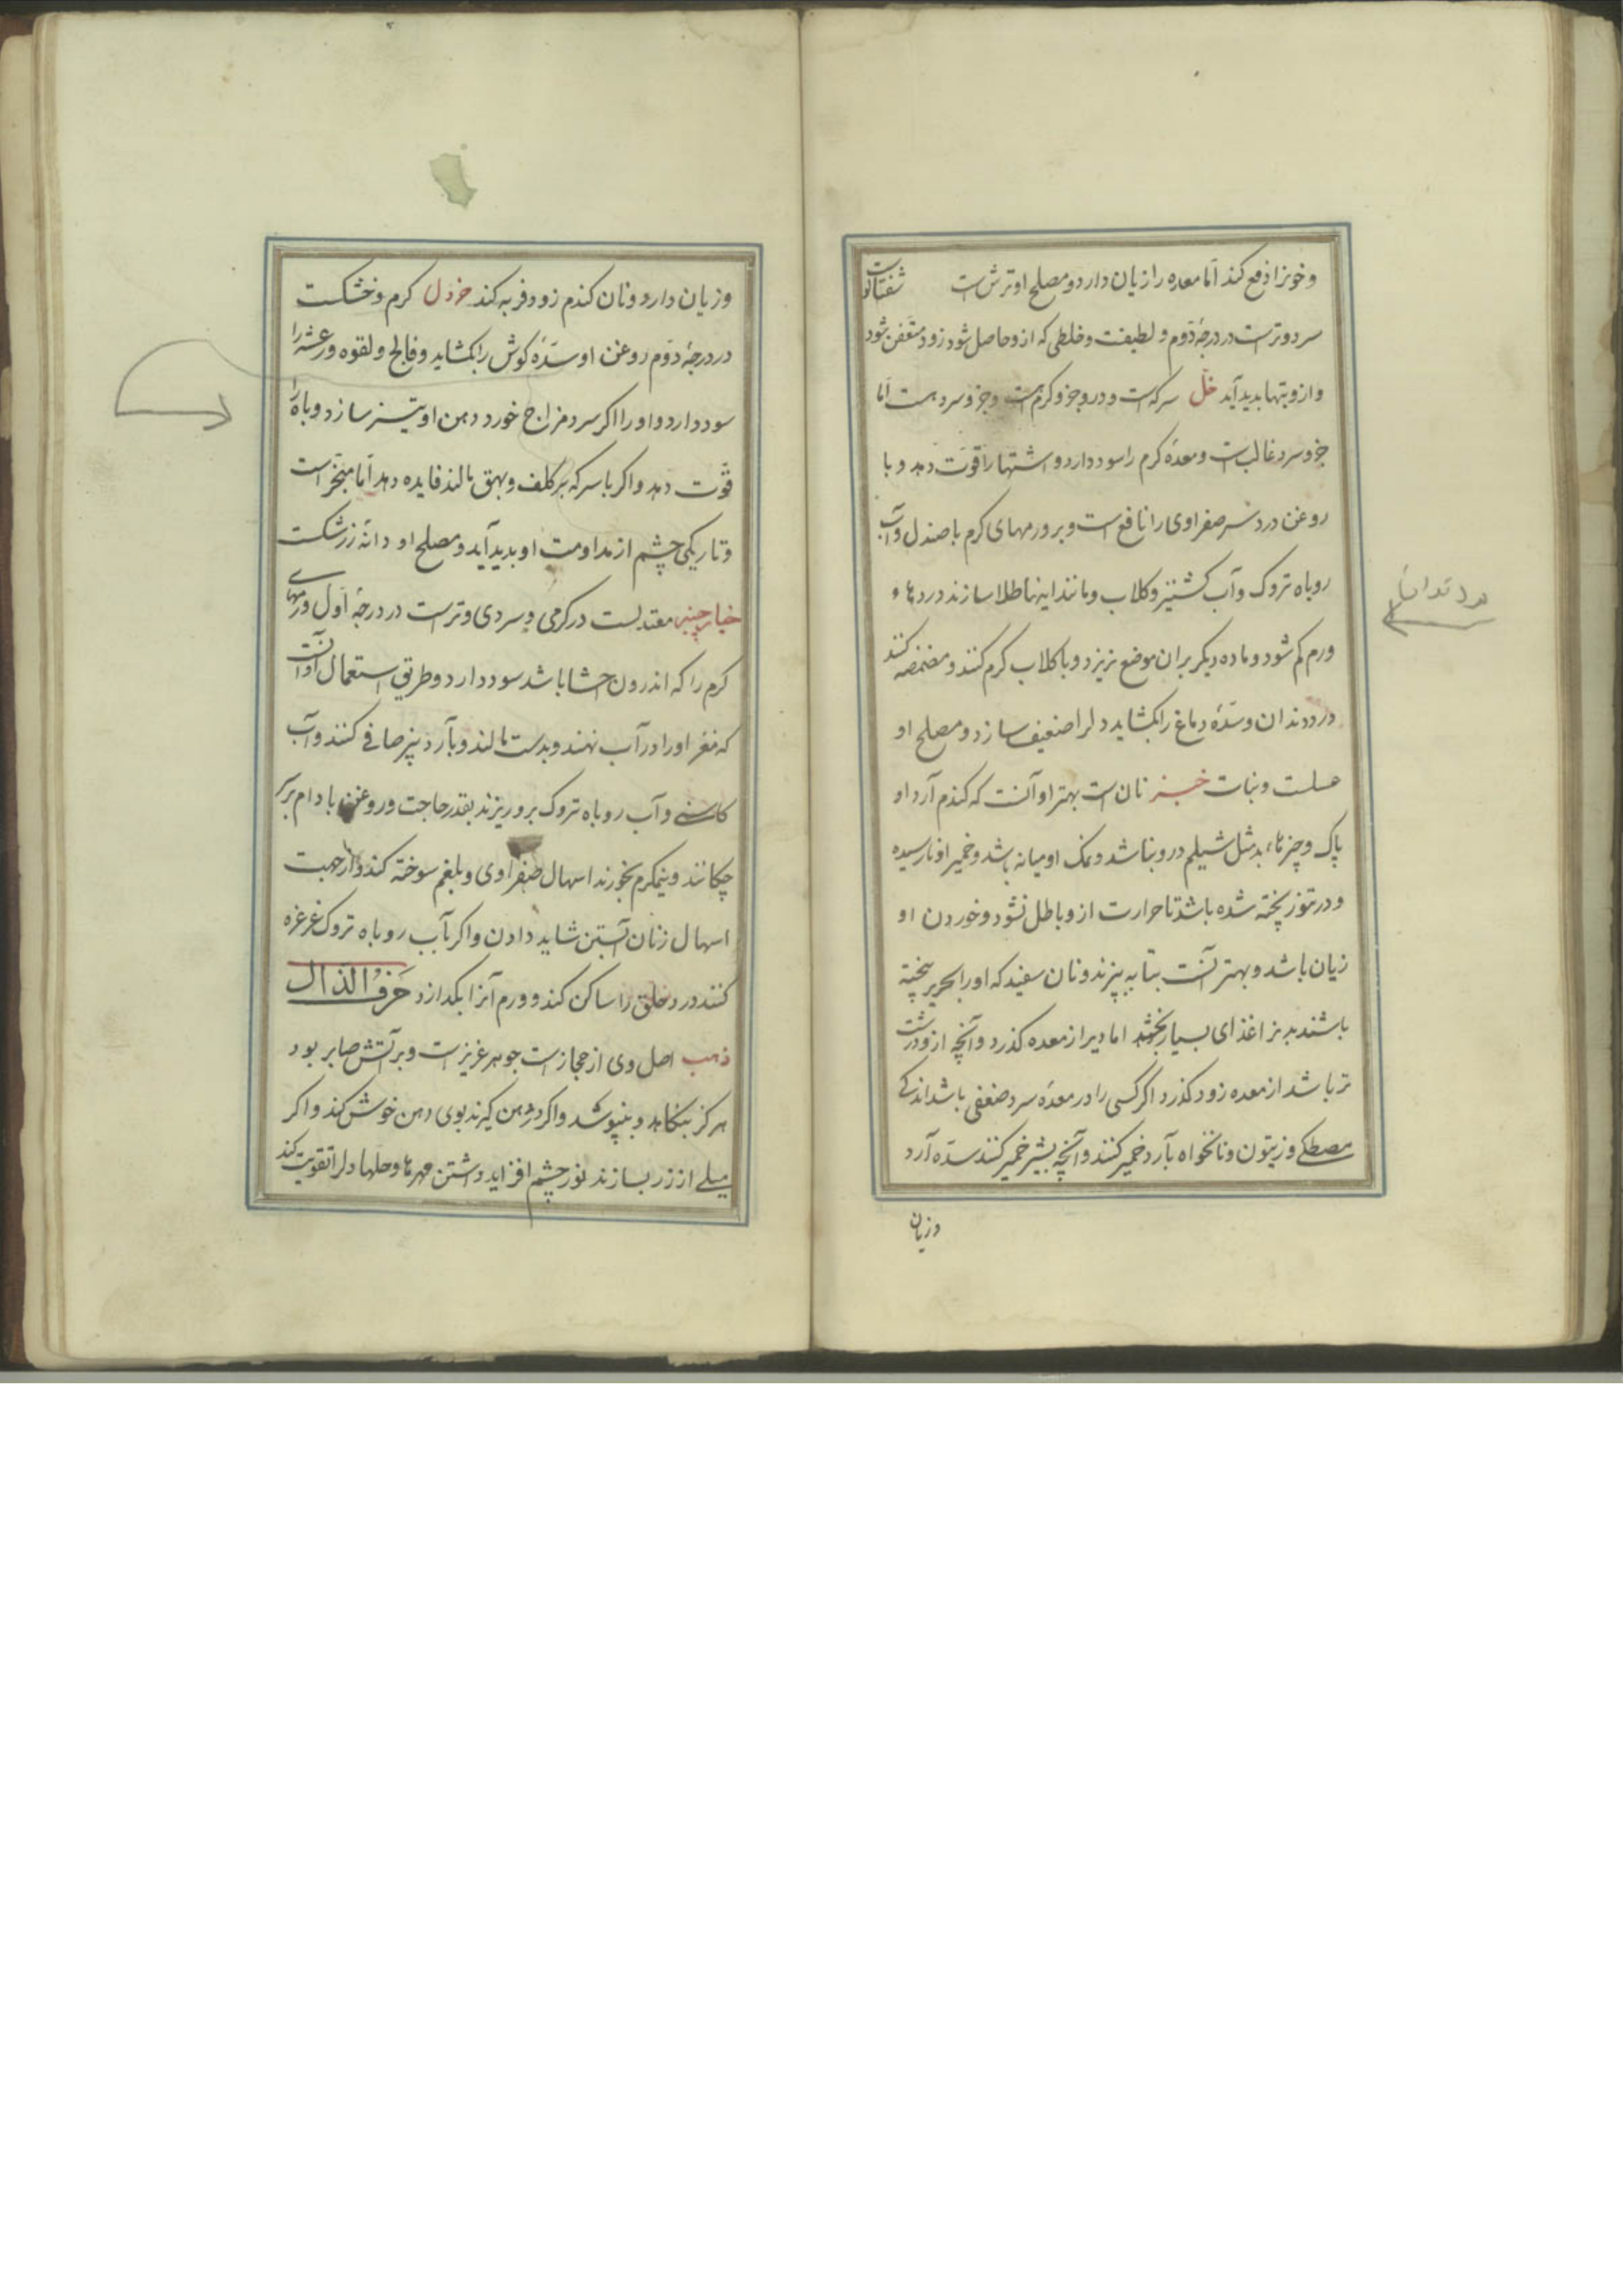 و خونرا دفع کند اما معده را زیان دارد و مصلح او ترش است شفتالوست
سرد و ترست در درجهٔ دوم و لطیفست و خلطی که ازو حاصل شود زود متعفن شود
و ازو تبها بدید آید خل سرکه است و درو جزو کرم است و جزو سرد هست اما
جزو سرد غالب است و معدهٔ کرم را سود دارد و اشتها را قوت دهد و با
روغن درد سر صفراوی را نافع است و بر ورمهای کرم با صندل و آب
روباه تروک و آب کشنیز و کلاب و مانند اینها طلا سازند دردها و
ورم کم شود و ماده دیکر بران موضع نریزد و با کلاب کرم کنند و مضمضه کنند
درد دندان و سدهٔ دماغ را بکشاید دل را ضعیف سازد و مصلح او
عسلست و نبات خبز نان است بهتر او آنست که کندم آرد او
پاک و چیزهاء بد مثل شیلم درو نباشد و نمک او میانه باشد و خمیر او نارسیده
و در تنور پخته شده باشد تا حرارت ازو باطل نشود و خوردن او
زیان باشد و بهتر آنست بتابه بپزند و نان سفید که او را بحریر بیخته
باشند بدنرا غذای بسیار بخشد اما دیر از معده کذرد و آنچه ازو درشت
تر باشد از معده زود کذرد اکر کسی را در معدهٔ سرد ضعفی باشد اندکی
مصطکی و زیتون و نانخواه بآرد خمیر کنند و آنچه بشیر خمیر کنند سدّه آرد
و زیان
و زیان دارد و نان کندم زود فربه کند خردل کرم و خشکست
در درجهٔ دوم روغن او سدّهٔ کوش را بکشاید و فالج و لقوه و رعشه را
سود دارد و او را اکر سرد مزاج خورد دهن او تیز سازد و باه را
قوت دهد و اکر با سرکه بر کلف و بهق مالند فایده دهد اما مبخّر است
و تاریکی چشم از مداومت او بدید آید و مصلح او دانهٔ زرشکست
خیارچنبر معتدلست در کرمی و سردی و ترست در درجهٔ اول ورمهای
کرم را که اندرون احشا باشد سود دارد و طریق استعمال او آنست
که مغز او را در آب نهند و بدست مالند و بآرد بیز صافی کنند و آب
کاسنی و آب روباه تروک برو ریزند بقدر حاجت و روغن بادام برو
چکانند و نیمکرم بخورند اسهال صفراوی و بلغم سوخته کند و از جهت
اسهال زنان آبستن شاید دادن و اکر بآب روباه تروک غرغره
کنند درد حلق را ساکن کند و ورم آنرا بکدازد حَرفُ الذال
ذهب اصل وی از حجازست جوهر عزیزست و بر آتش صابر بود
هرکز بنکاهد و بنپوشد و اکر در دهن کیرند بوی دهن خوش کند و اکر
میلی از زر بسازند نور چشم افزاید داشتن مهرها و حلها دل را تقویت کند